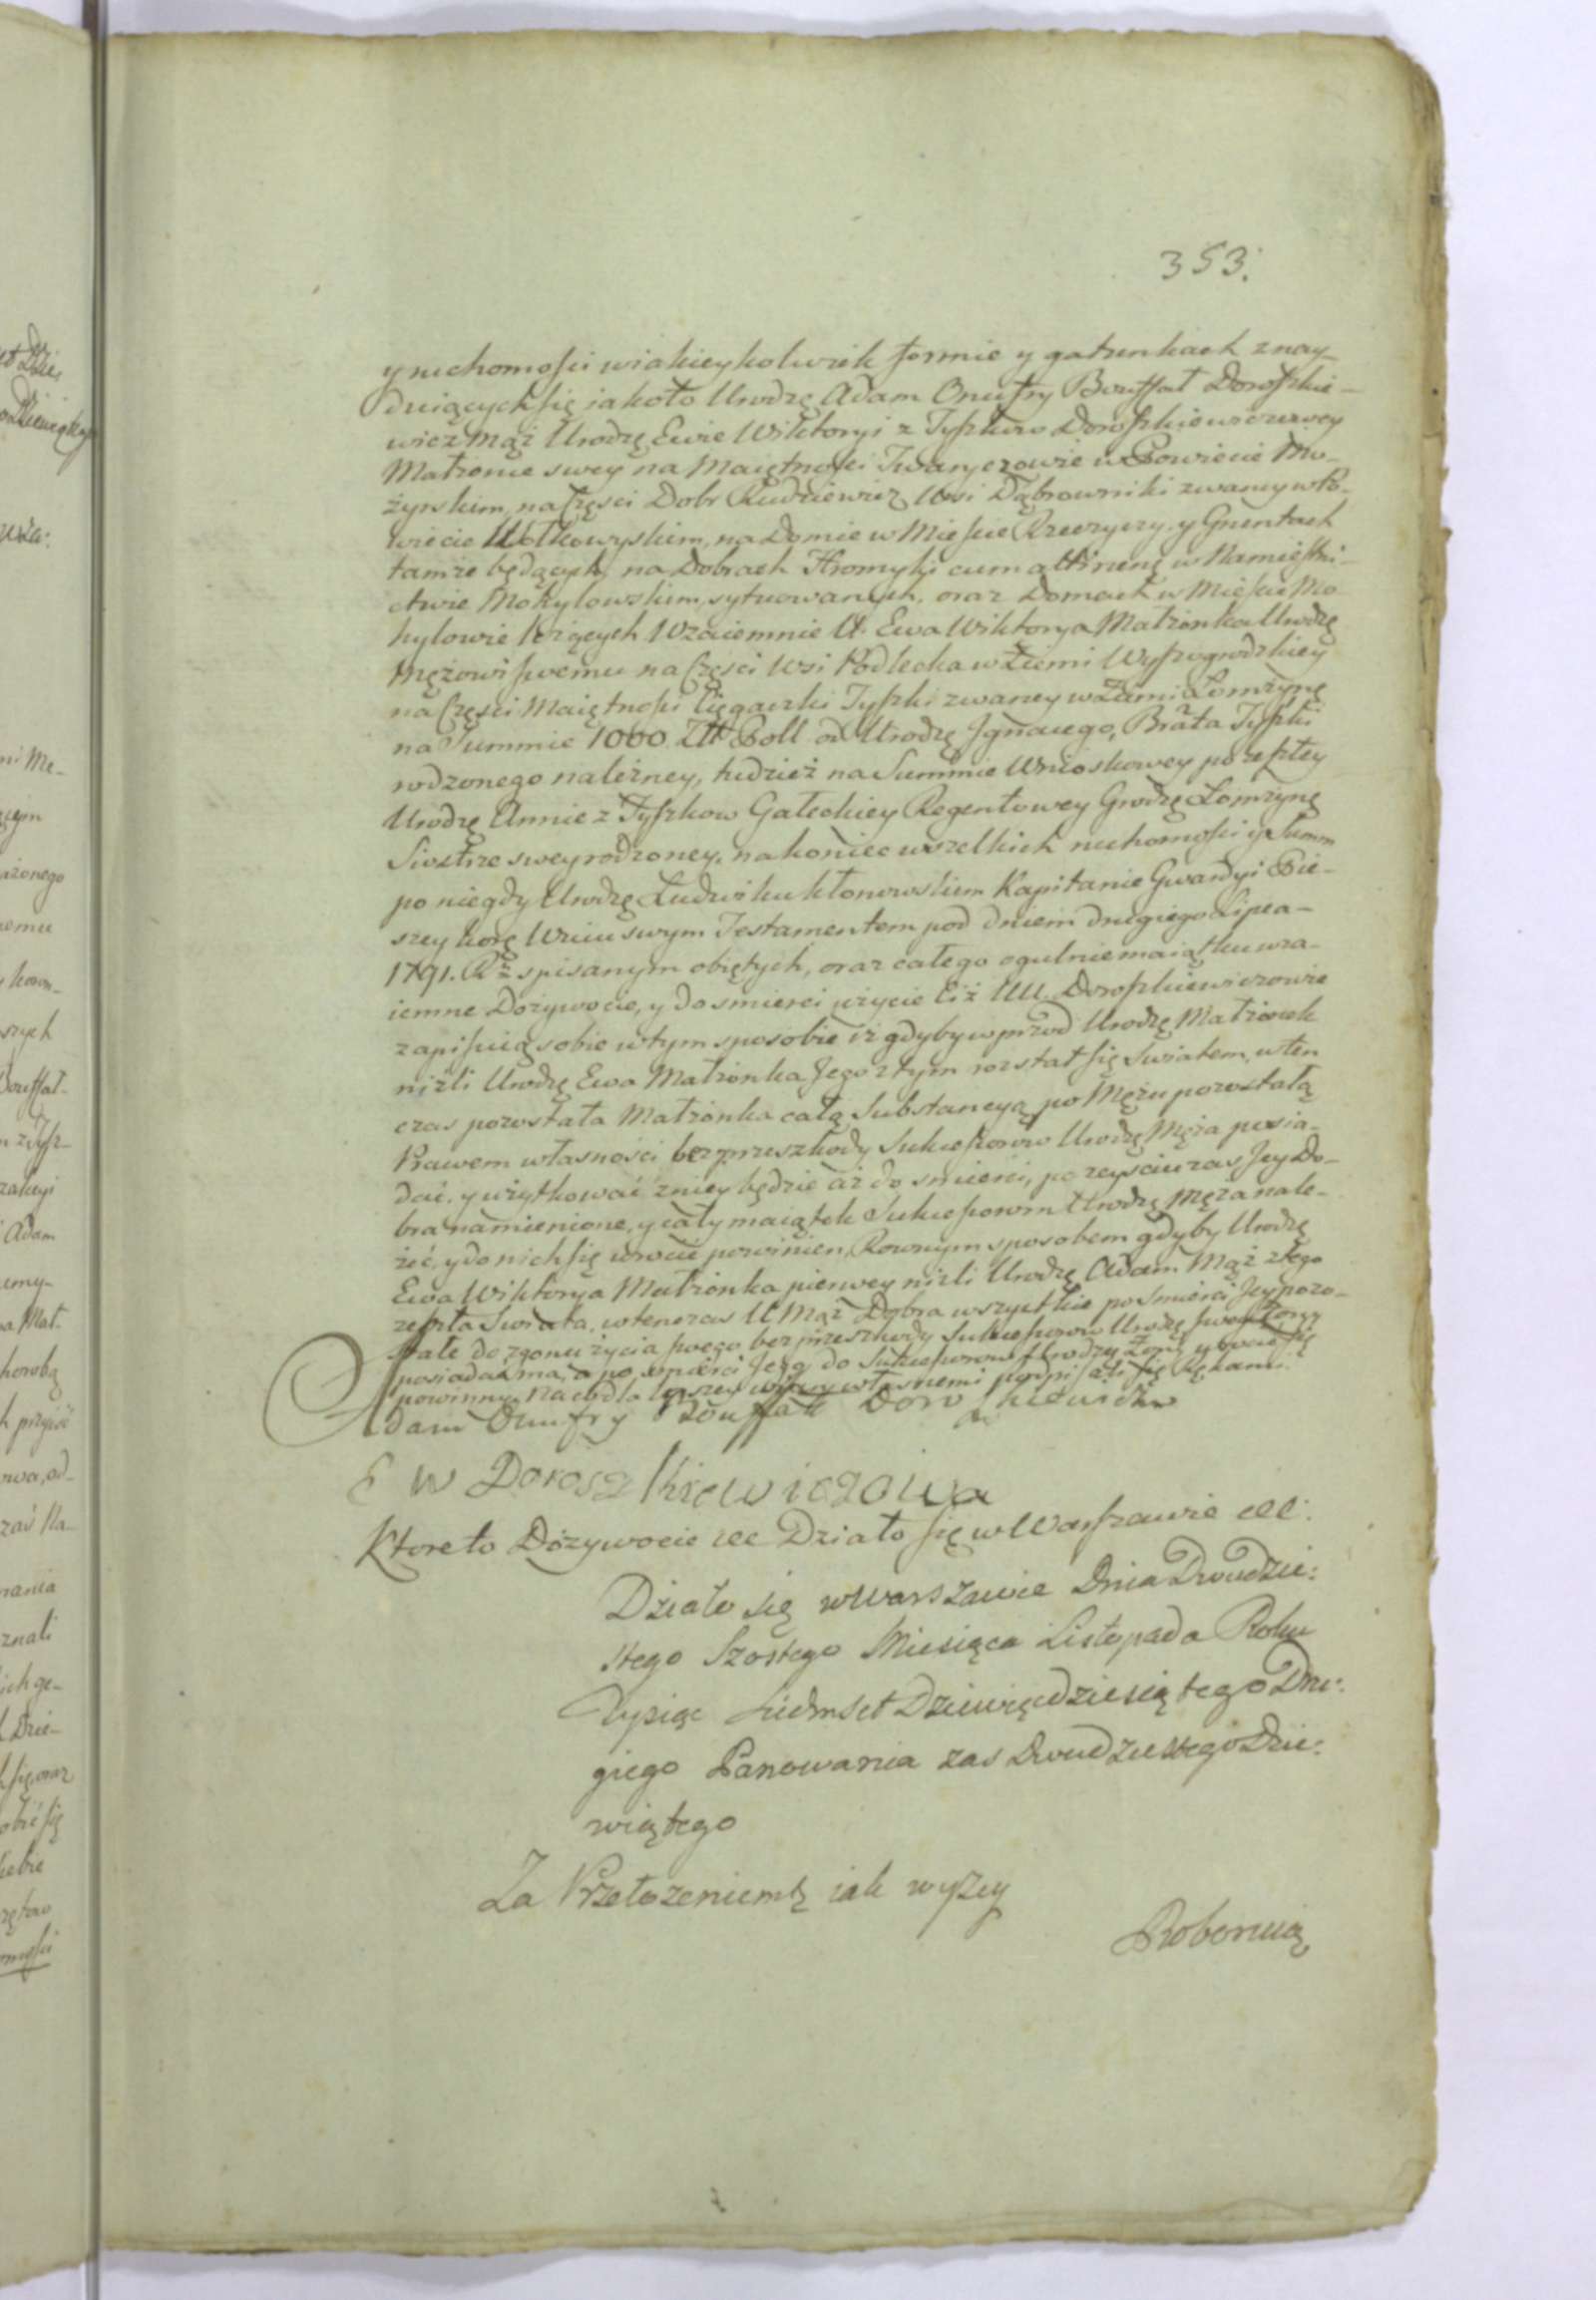 353.
y ruchomości w iakieykolwiek formie y gatunkach znay-
duiących się iakoto Urodzę Adam Onufry Bouffał Doroszkie-
wicz mąż Urodzę Ewie Wiktoryi z Tyszkow Doroszkiewiczowey
Małżonce swey na Maiętności Iwanyczowie w Powiecie Mo-
zyrskim, na Części Dobr Rudziewicz Wsi Dąbrowniki zwaney w Po-
wiecie Wołkowyskim, na Domie w Mieście Rzeczycy y Gruntach
tamże będących, na Dobrach Hromyki cum attinenę w Namiestni-
ctwie Mohylowskim, sytuowanych, oraz Domach w Mieście Mo
hylowie leżących Wzaiemnie U. Ewa Wiktorya Małżonka Urodzę
Mężowi swemu na Części Wsi Podlecka w Ziemi Wyszogrodzkiey
na Części Maiętności Cięgaczki Tyszki zwaney w Ziemi Łomżynę
na Summie 1000 Złł Poll od Urodzę Ignacego, Brata Tyszki
rodzonego należney, tudzież na Summie Wnioskowey po zeszłey
Urodzę Annie z Tyszkow Gałeckiey Regentowey Grodzę Łomżynę
Siostrze swey rodzoney, nakoniec wszelkich ruchomości y Summ
po niegdy Urodzę Ludwiku Kłonowskim Kapitanie Gwardyi Pie-
szey Korę Wuiu swym Testamentem pod dniem drugiego Lipca-
1791. Rę spisanym obiętych, oraz całego ogulnie maiątku wza-
iemne Dożywocie, y do smierci użycie Ciż UU. Doroszkiewiczowie
zapisuią sobie w tym sposobie iż gdyby w przod Urodzę Małżonek
niżli Urodzę Ewa Małżonka Jego z tym rozstał się Swiatem, w ten
czas pozostała Małżonka całą Substancyą po Mężu pozostałą
Prawem własności bez przeszkody Sukcessorow Urodzę Męża posia-
dać, y użytkować z niey będzie aż do smierci, po zeysciu zas Jey Do-
bra namienione, y cały maiątek Sukcessorom Urodzę Męża nale-
żeć, y do nich się wrocić powinien, Rownym sposobem gdyby Urodzę
Ewa Wiktorya Małżonka pierwey niżli Urodzę Adam Mąż z tego
zeszła Swiata, wtenczas U Mąż Dobra wszystkie po Smierci Jey pozo-
stałe do zgonu życia swego bez przeszkody Sukcessorow Urodzę swey Żony
posiadać ma, a po smierci Jego do Sukcessorow Urodzę Żony wrocić się
powinny. Na co dla lepszey wiary własnemi podpisali się Rękami.
Adam Onufry Bouffałł Doroszkiewicz
E W Doroszkiewiczowa
Ktoreto Dożywocie ecc Działo się w Warszawie ecc.
Działo się w Warszawie Dnia Dwudzie:
stego Szostego Miesiąca Listopada Roku
Tysiąc Siedmset Dziewięcdziesiątego Dru:
giego Panowania zas Dwudziestego Dzie:
wiątego
Za Przełozeniemę iak wyzey
Roboruią